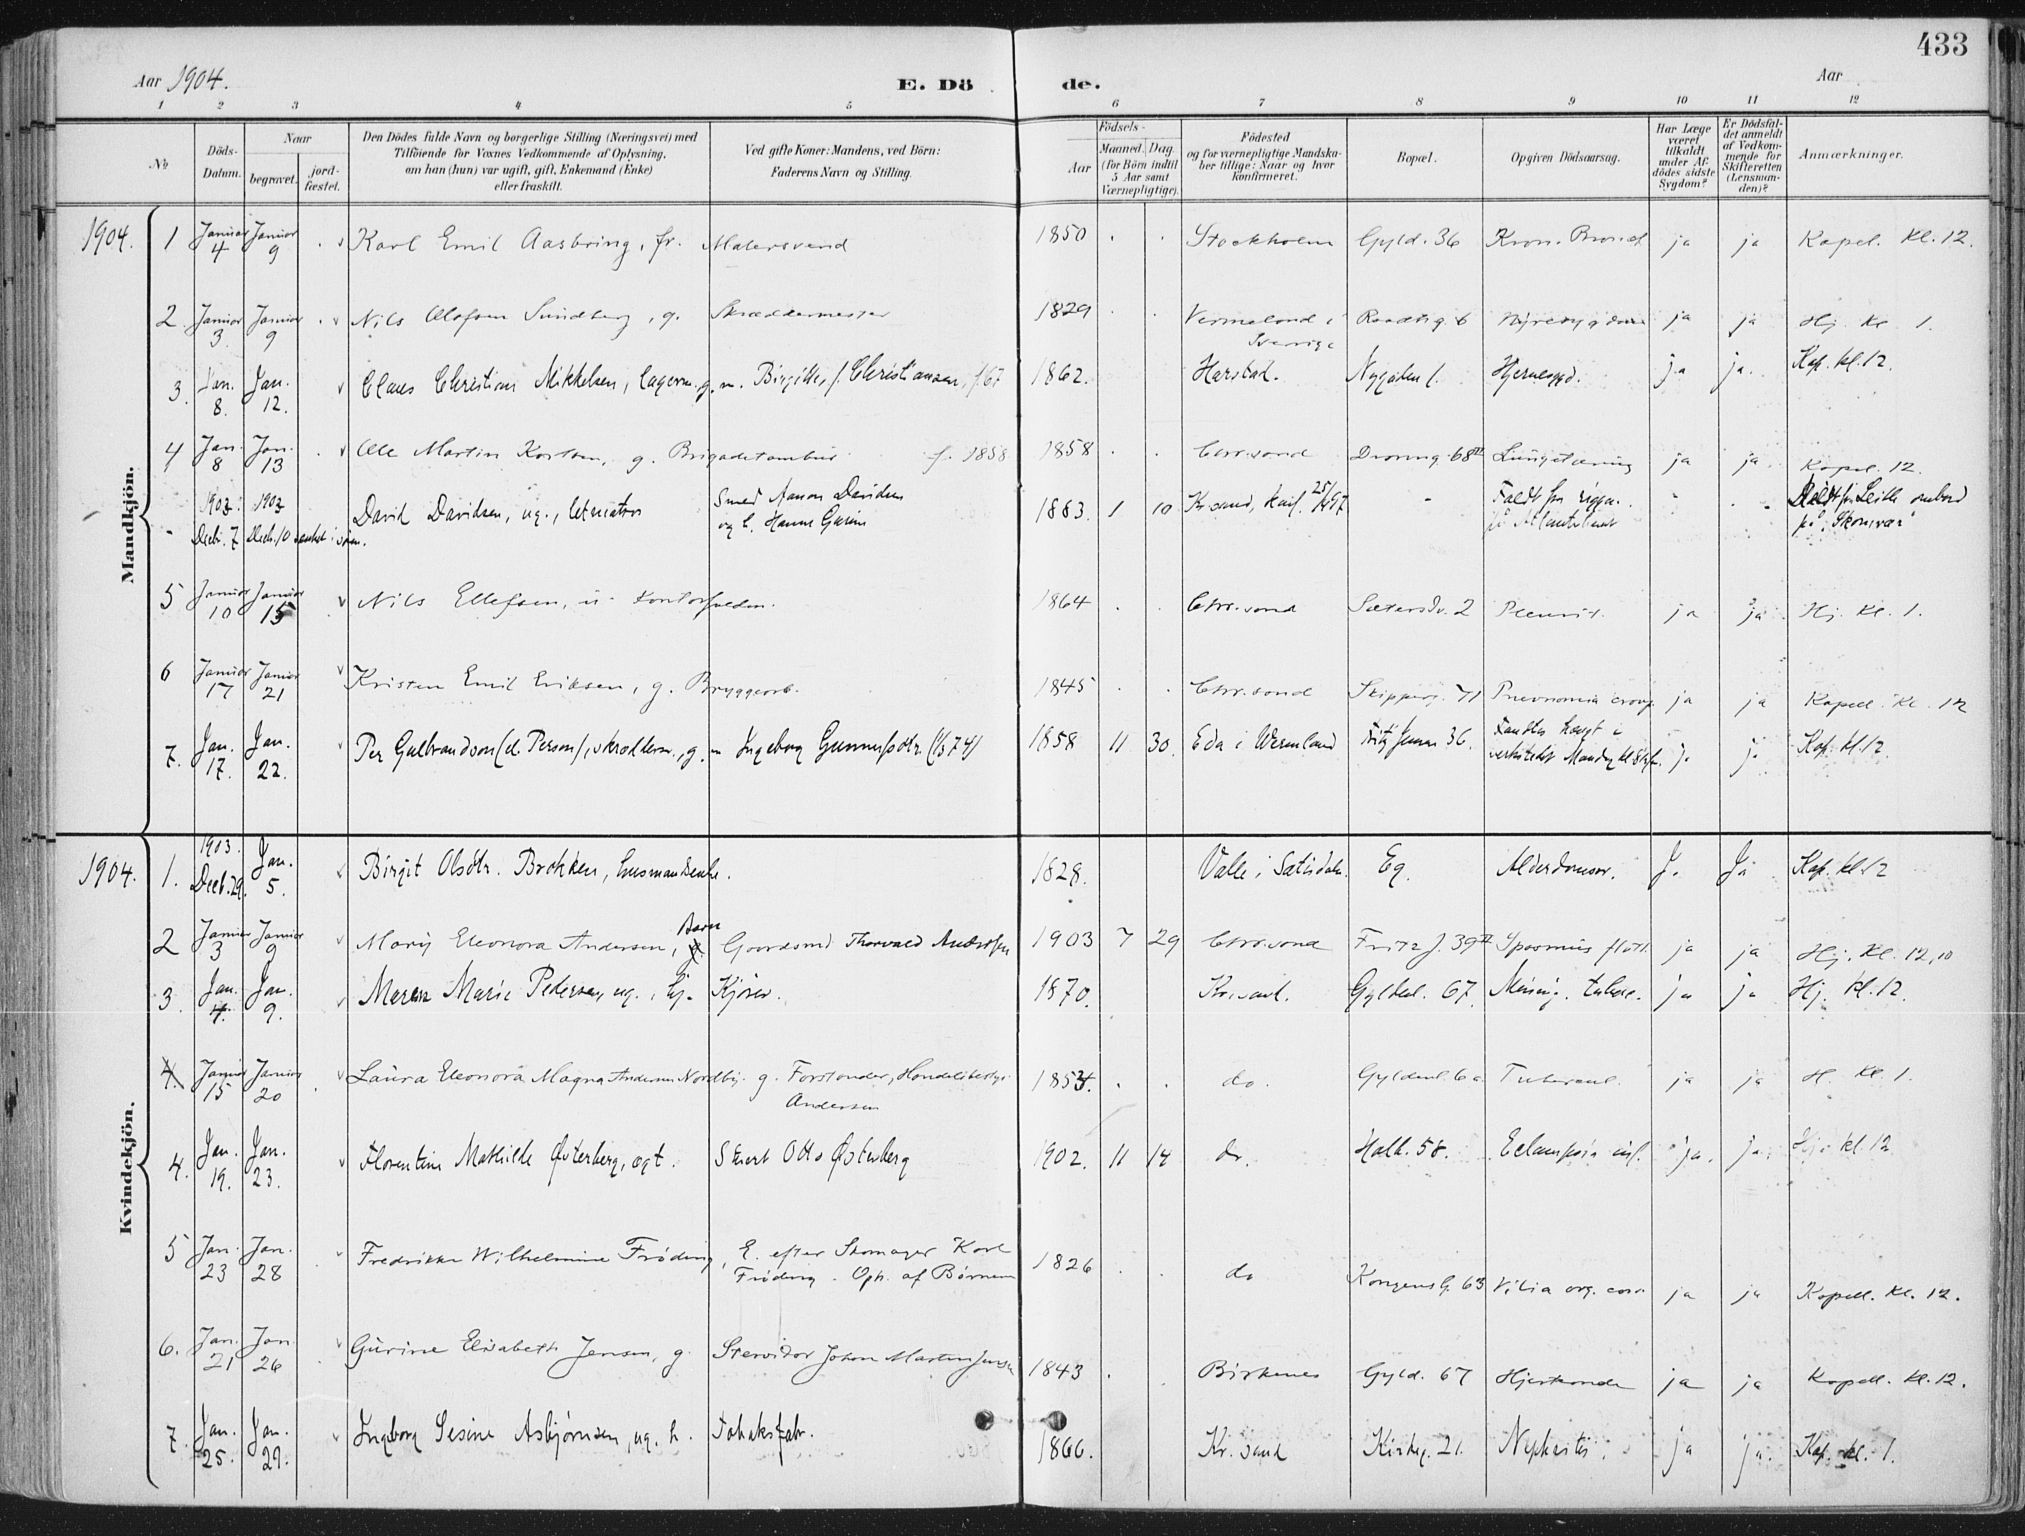 433
Aar 1904. E. Dö de. Aar
1 2 3 4 5 6 7 8 9 10 11 12
№ Döds-Datum. Naar begravet. jord-fæstet.
Den Dödes fulde Navn og borgerlige Stilling (Næringsvei) med
Tilföiende for Voxnes Vedkommende af Oplysning,
om han (hun) var ugift, gift, Enkemand (Enke)
eller fraskilt.
Ved gifte Koner: Mandens, ved Börn:
Faderens Navn og Stilling.
Födsels-
Aar Maaned. Dag.
(for Börn indtil
5 Aar samt
Værnepligtige).
Födested
og for værnepligtige Mandska-
ber tillige: Naar og hvor
konfirmeret.
Bopæl.
Opgiven Dödsaarsag.
Har Læge
været
tilkaldt
under Af-
dödes sidste
Sygdom?
Er Dödsfal-
det anmeldt
af Vedkom-
mende for
Skifteretten
(Lensman-
den)?
Anmærkninger.
Mandkjön.
1904. 1 Januar 4 Januar 9 Karl Emil Aasbring, fr. Malersvend 1850 Stockholm Gyld. 36 Kron. Bronch ja ja Kapel. Kl. 12.
2. Januar 3. Januar 9 Nils Olofsen Sundberg, g. Skræddermester 1829 Vermeland i Sverige Raadhg. 6 ja ja Hj. Kl. 1.
3. Jan. 8. Jan. 12. Claus Christian Mikkelsen, lagerm. g. m. Birgitte, f. Christiansen, f 67 1862. Harstad. Nygaden 1. ja ja. Kap. kl. 12.
4 Jan. 8 Jan. 13 Ole Martin g. Brigadetambur f. 1858 1858 Chr.sand Dronng. 68 Lungetæring ja ja Kapel. 12.
- 1903 Decbr. 7 1903 Decb. 10 sænket i søen. David Davidsen, ug., letmatros Smed Aanon Davidsen og h. Hanne 1883. 1 10 Kr.sand, konf. 25/4 97 - Faldt fra riggen på Atlanterhavet - - Reist fra Leith ombord på "Skomvær"
5 Januar 10 Januar 15 Nils Ellefsen, u. 1864 Chr.sand Sætersdv. 2 Pleurit. ja ja Hj. Kl. 1.
6 Januar 17 Januar 21 Kristen Emil Eriksen, g. Bryggearb. 1845 Chr.sand Skipperg. 71 Pneumonia croup. ja ja Kapell. Kl. 12
7. Jan. 17. Jan. 22. Per Gulbrandson (el. Person), skrædderm., g. m Ingeborg 1858 11 30. Eda i Wermland Fritz Jensen 36. j. j. Kap. kl. 12
Kvindekjön.
1904. 1. 1903. Decb. 29. Jan. 5. Birgit Olsdtr. Brokken, husmandsenke. 1828. Valle i Sætisdalen. Eg. Alderdomssv. J. Ja Kap. kl. 12
2 Januar 3 Januar 9 Marij Eleonora Andersen, Barn Gaardsmd Thorvald Andersen 1903 7 29 Chr.sand Fritz J. 39 Spasmus glott. ja ja Hj. Kl. 12,10
3. Jan. 4. Jan. 9. Maren Marie Pedersen, ug., hj. Kjører. 1870. Kr.sand. Gyldenl. 67. Mening. tuberc. ja ja Hj. kl. 12.
4. Januar 15 Januar 20 Laura Eleonora Magna Andersen Nordby. g. Forstander, Handelsbestyr. Andersen 1854. do. Gyldenl. 6a Tubercul. ja ja H. Kl. 1.
4. Jan. 19. Jan. 23. Florentine Mathilde Østerberg, ægt. Stuert Otto Østerberg 1902. 11 14 do. Holb. 58. Eclampsia inf. ja. ja. Hj. kl. 12
5 Jan. 23 Jan. 28 Fredrikke Wilhelmine Frøding, E. efter Skomager Karl Frøding. Oph. af Børnene 1826 do Kongensg. 63 Vitia org. cord. ja ja Kapell. Kl. 12.
6. Jan. 21 Jan. 26 Gurine Elisabeth Jensen, g. Stervidor Johan Martin Jensen 1843 Birkenes Gyld. 67 Hjerteonde ja ja Kapell. Kl. 12.
7. Jan. 25. Jan. 29. Ingeborg Sesine Asbjørnsen, ug. h. Tobaksfabr. 1866. Kr.sand Kirkeg. 21. Nephritis. ja ja. Kap. kl. 1.